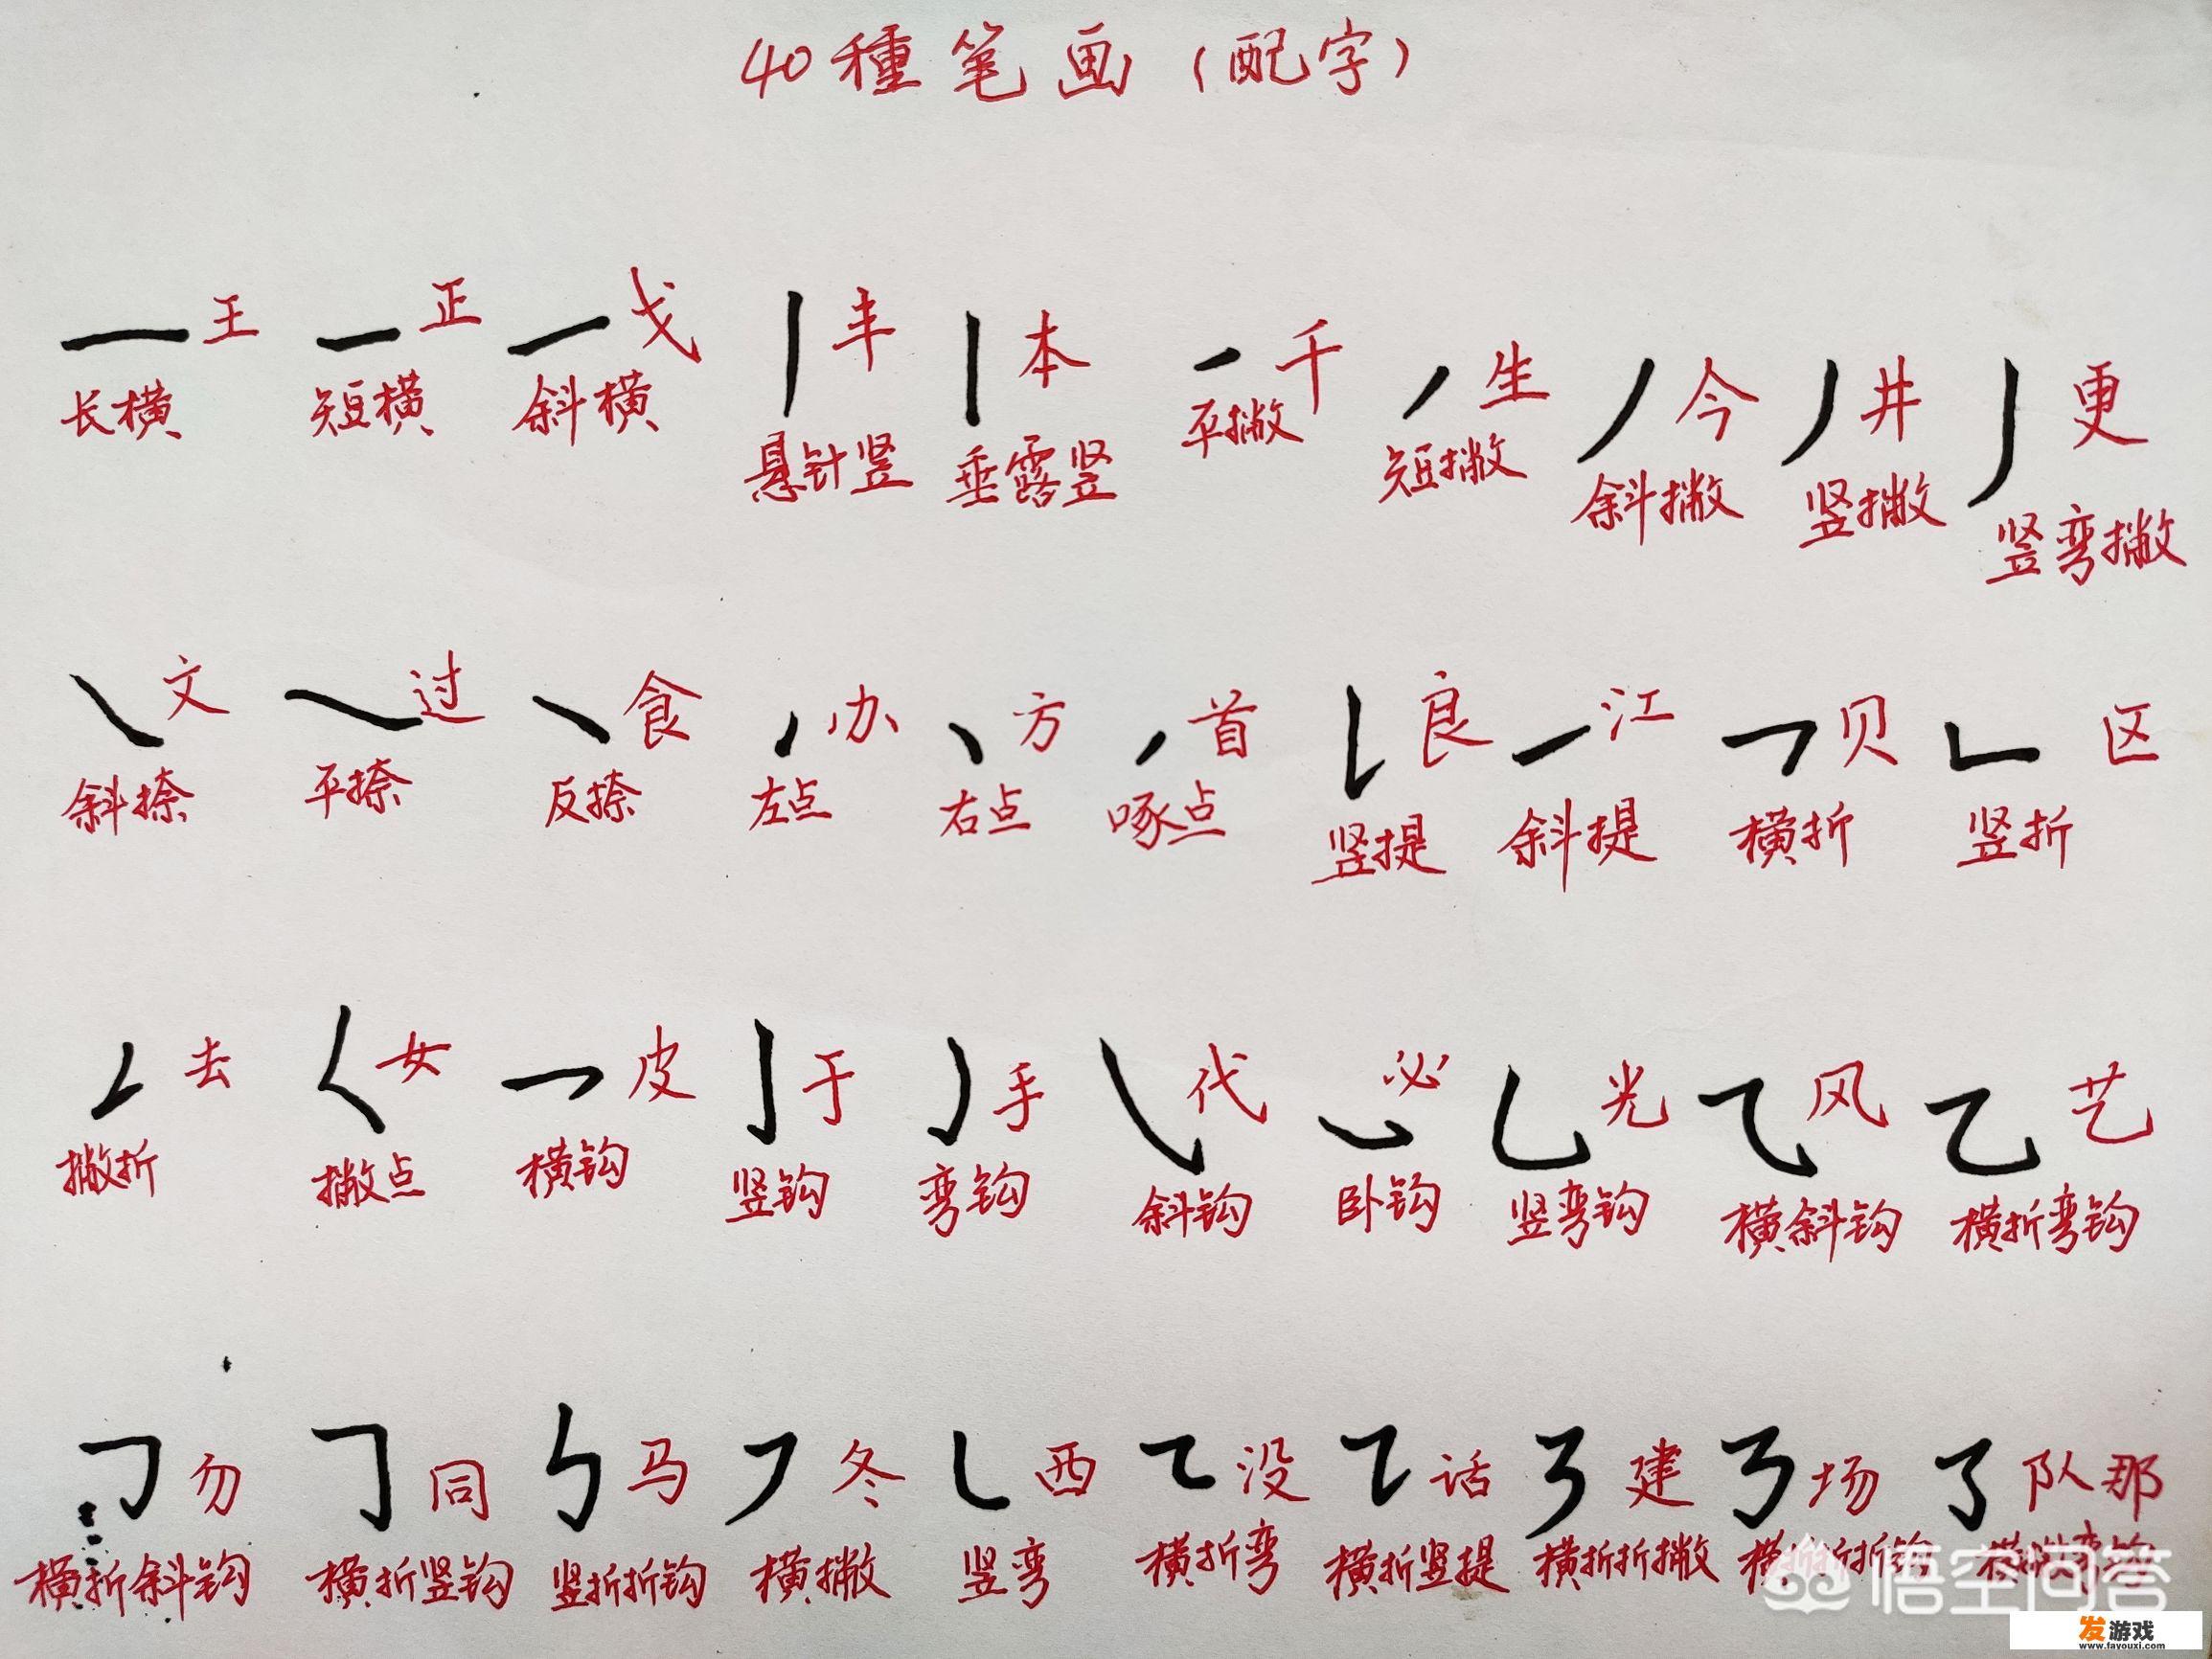 40種笔画（配字）
王 正 戈 丰 本 千 生 今 井 更
长横 短横 斜横 悬针竖 垂露竖 平撇 短撇 斜撇 竖撇 竖弯撇
文 过 食 办 方 首 良 江 贝 区
斜捺 平捺 反捺 左点 右点 啄点 竖提 斜提 横折 竖折
去 女 皮 于 手 代 必 光 风 艺
撇折 撇点 横钩 竖钩 弯钩 斜钩 卧钩 竖弯钩 横斜钩 横折弯钩
勿 同 马 冬 西 没 话 建 场 队那
横折斜钩 横折竖钩 竖折折钩 横撇 竖弯 横折弯 横折竖提 横折折撇 横折折折钩 横撇弯钩
悟空问答
发游戏
www.fayouxi.com